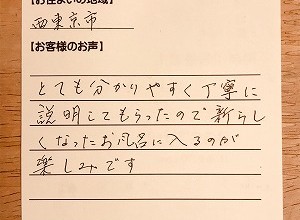 【お住まいの地域】
西東京市
【お客様のお声】
とても分かりやすく丁寧に
説明してもらったので新らし
くなったお風呂に入るのが
楽しみです